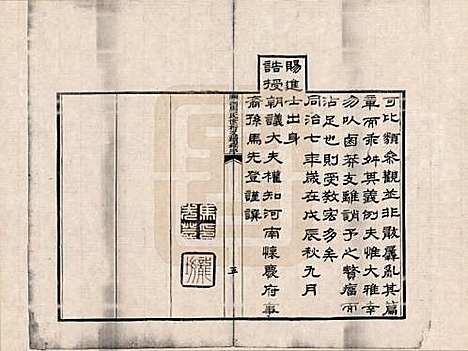 可比類參觀並非敢羼亂其篇
章而乖舛其義例夫惟大雅幸
勿以鹵莽支離誚予之贅瘤而
沾足也則受教宏多矣
同治七年歲在戊辰秋九月
賜進士出身
誥授朝議大夫權知河南懷慶府事
裔孫馬先登謹譔
五